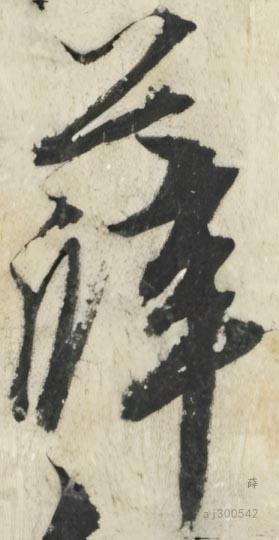 薛
薛
aj300542